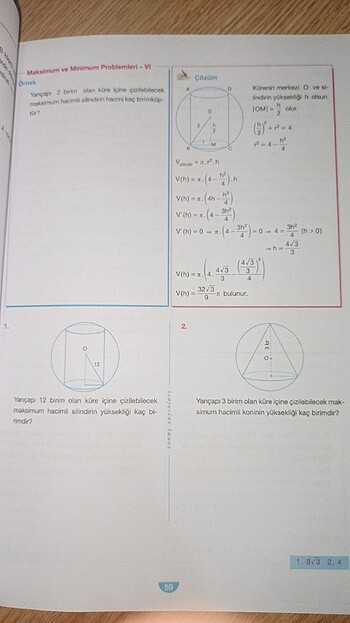 Maksimum ve Minimum Problemleri – VI
Örnek
Yarıçapı 2 birim olan küre içine çizilebilecek
maksimum hacimli silindirin hacmi kaç birimküp-
tür?
Çözüm
A
D
O
2
h/2
r
M
B
C
Kürenin merkezi O ve si-
lindirin yüksekliği h olsun.
|OM| = h/2 olur.
(h/2)² + r² = 4
r² = 4 - h²/4
V silindir = π.r².h
V(h) = π.(4 - h²/4).h
V(h) = π.(4h - h³/4)
V'(h) = π.(4 - 3h²/4)
V'(h) = 0 ⇒ π.(4 - 3h²/4) = 0 ⇒ 4 = 3h²/4 (h > 0)
⇒ h = 4√3/3
V(h) = π.(4.4√3/3 - (4√3/3)³/4)
V(h) = 32√3/9 π bulunur.
1.
O
12
Yarıçapı 12 birim olan küre içine çizilebilecek
maksimum hacimli silindirin yüksekliği kaç bi-
rimdir?
2.
3
O
Yarıçapı 3 birim olan küre içine çizilebilecek mak-
simum hacimli koninin yüksekliği kaç birimdir?
1. 8√3 2. 4
59